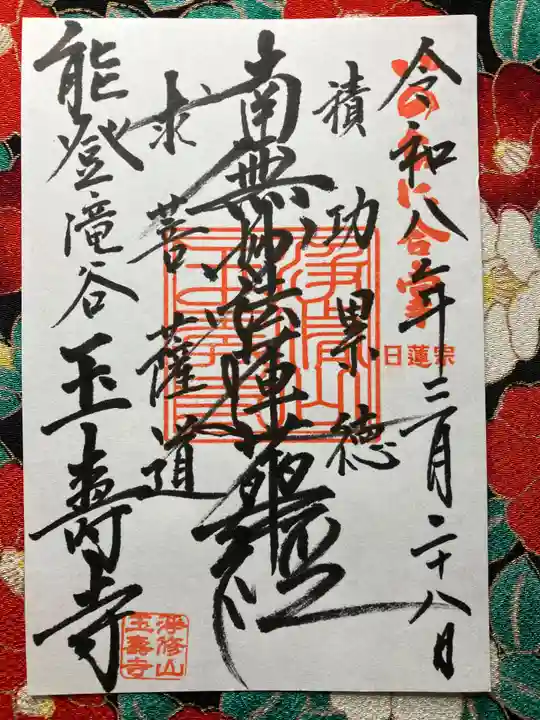 令和八年三月二十八日
いのちに合掌
日蓮宗
積功累徳
南無妙法蓮華経
求菩薩道
能登滝谷玉壽寺
浄修山
玉壽寺